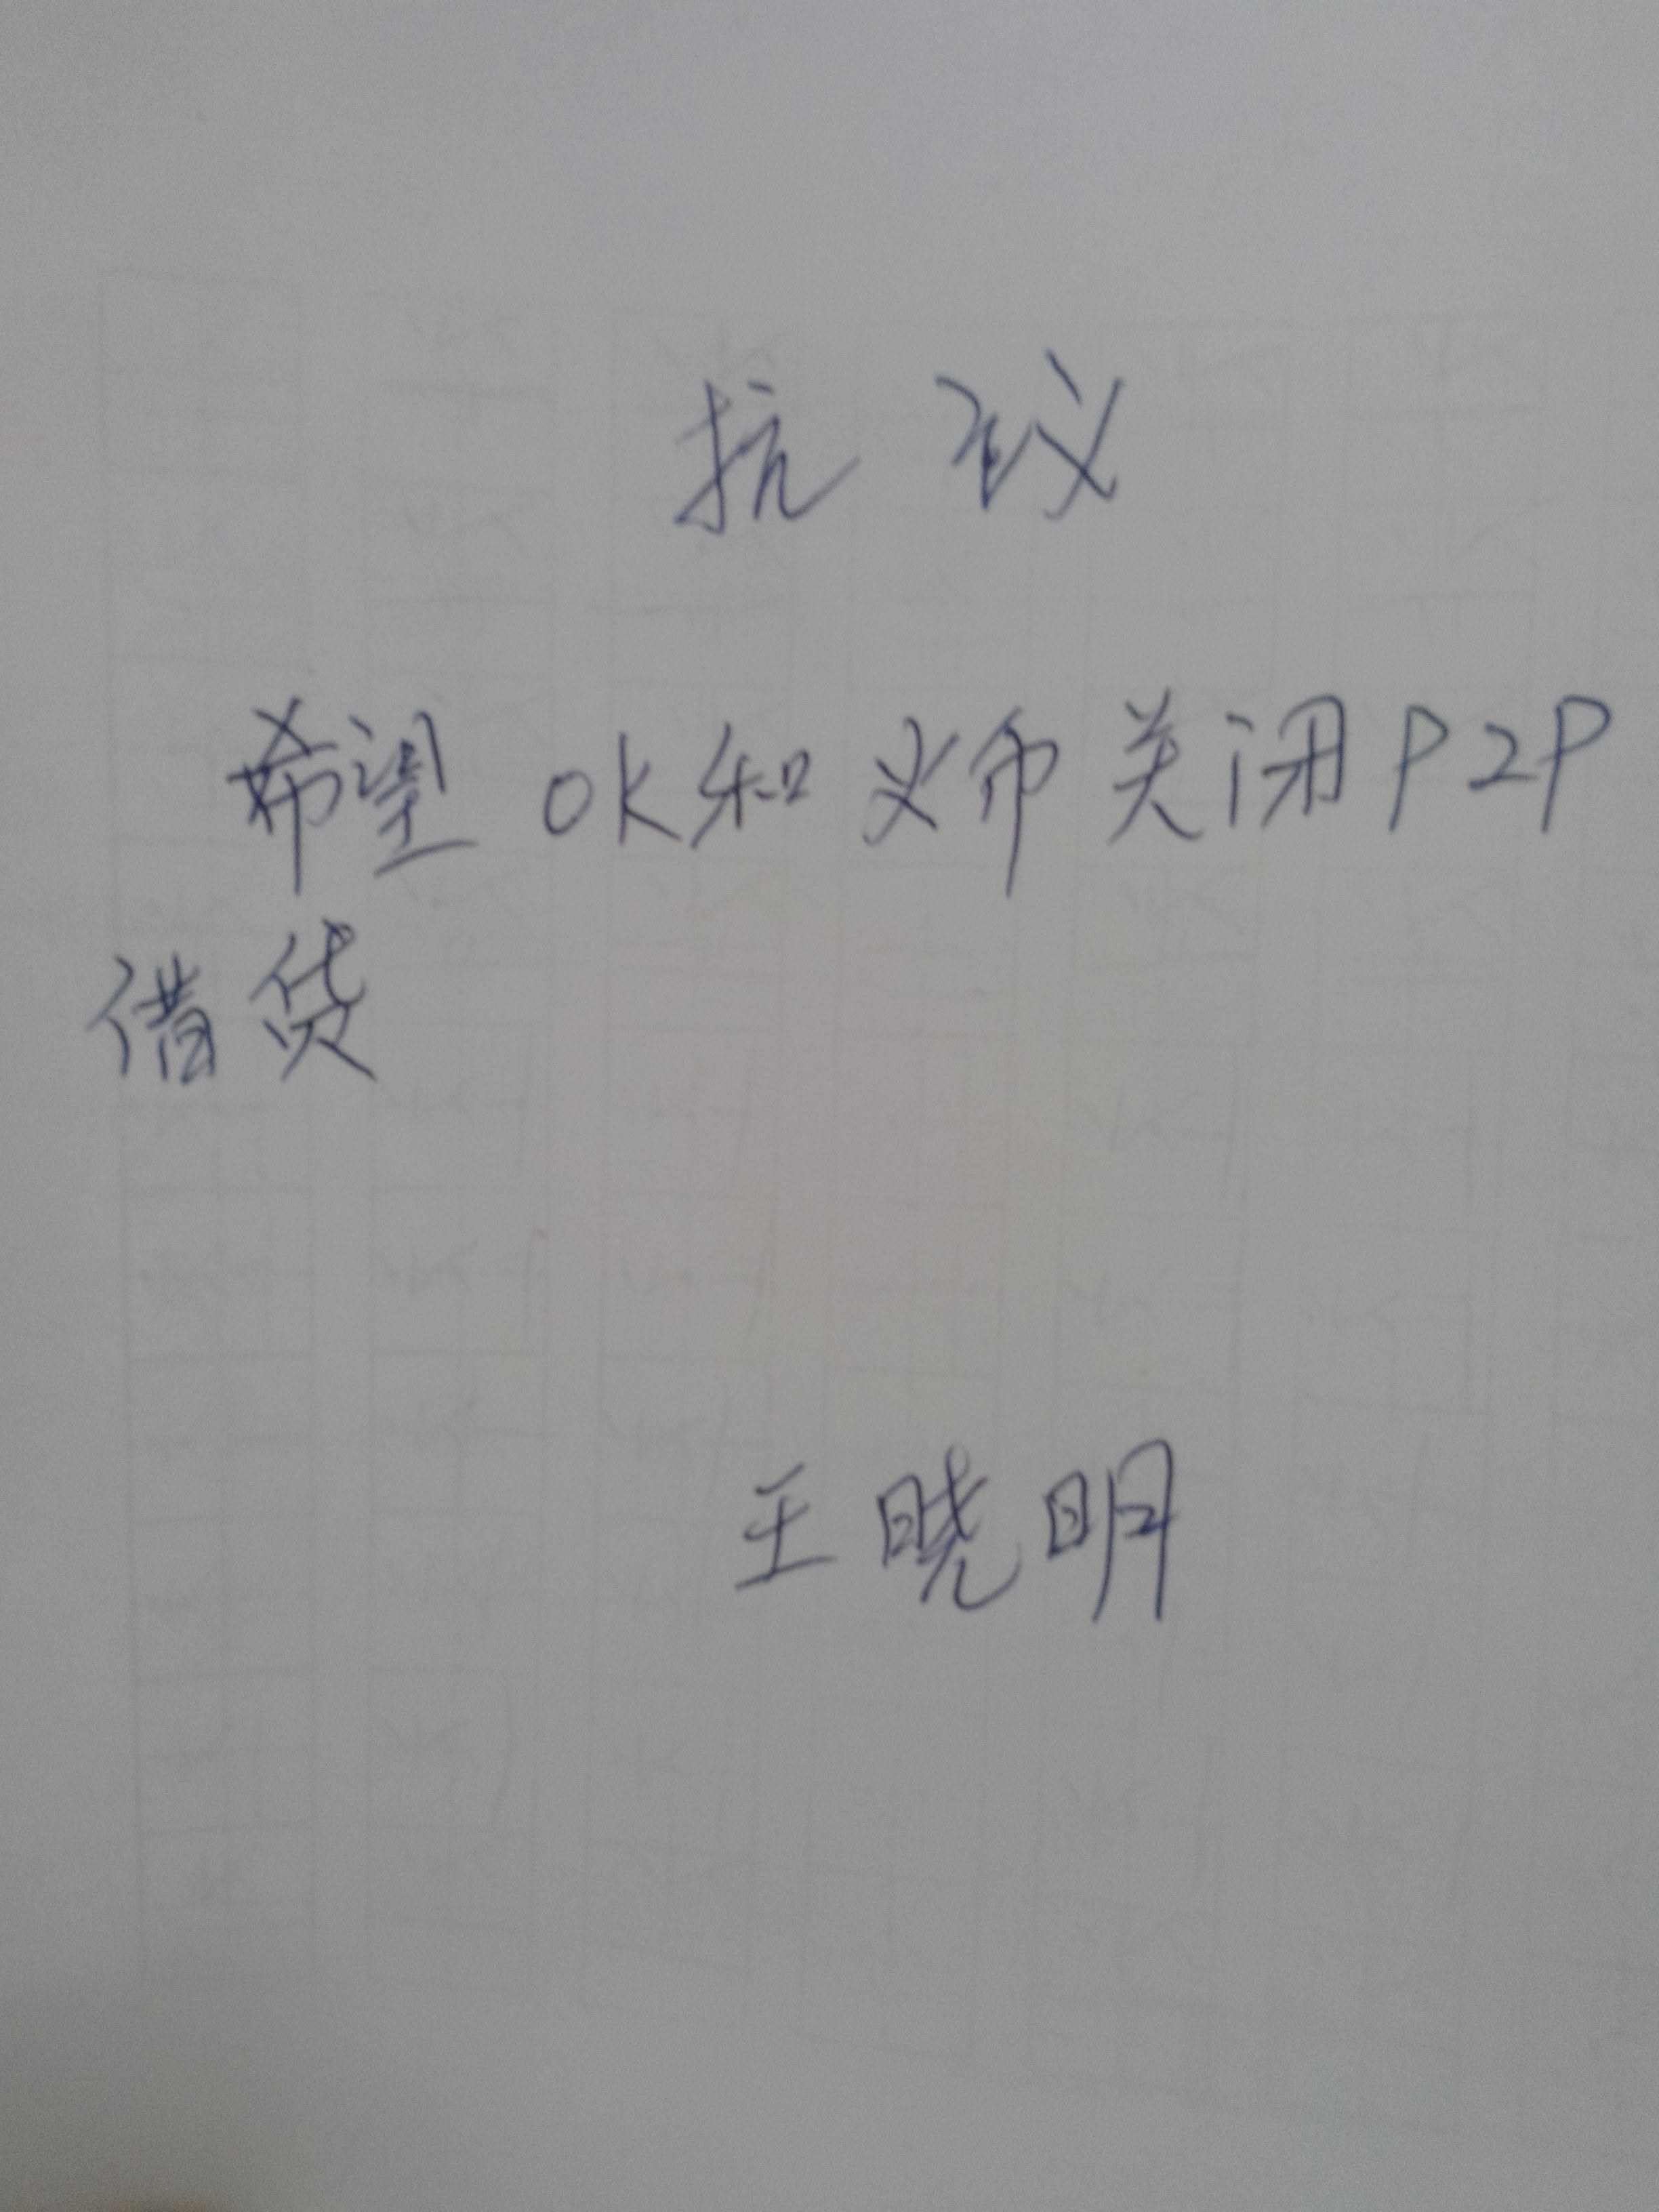 抗议
希望OK和火币关闭P2P
借贷
王晓明